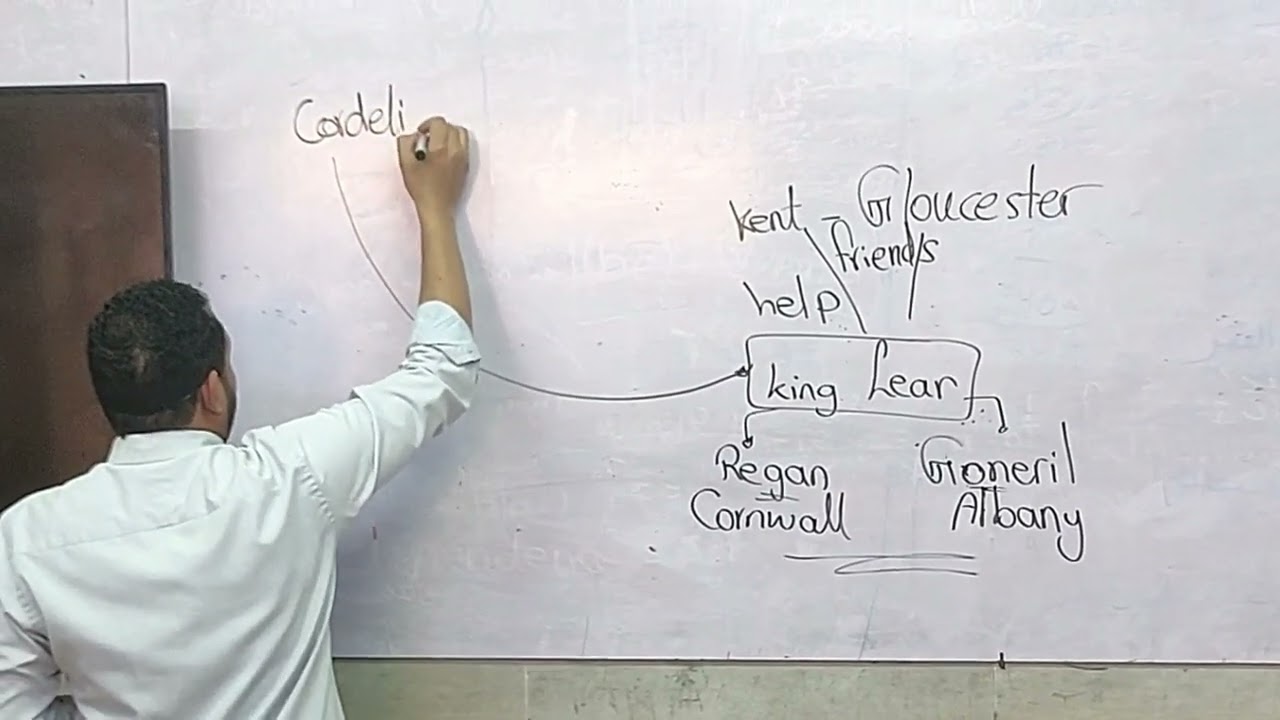 Cordeli
Kent - Gloucester
friends
help
King Lear
Regan
Cornwall
Goneril
Albany